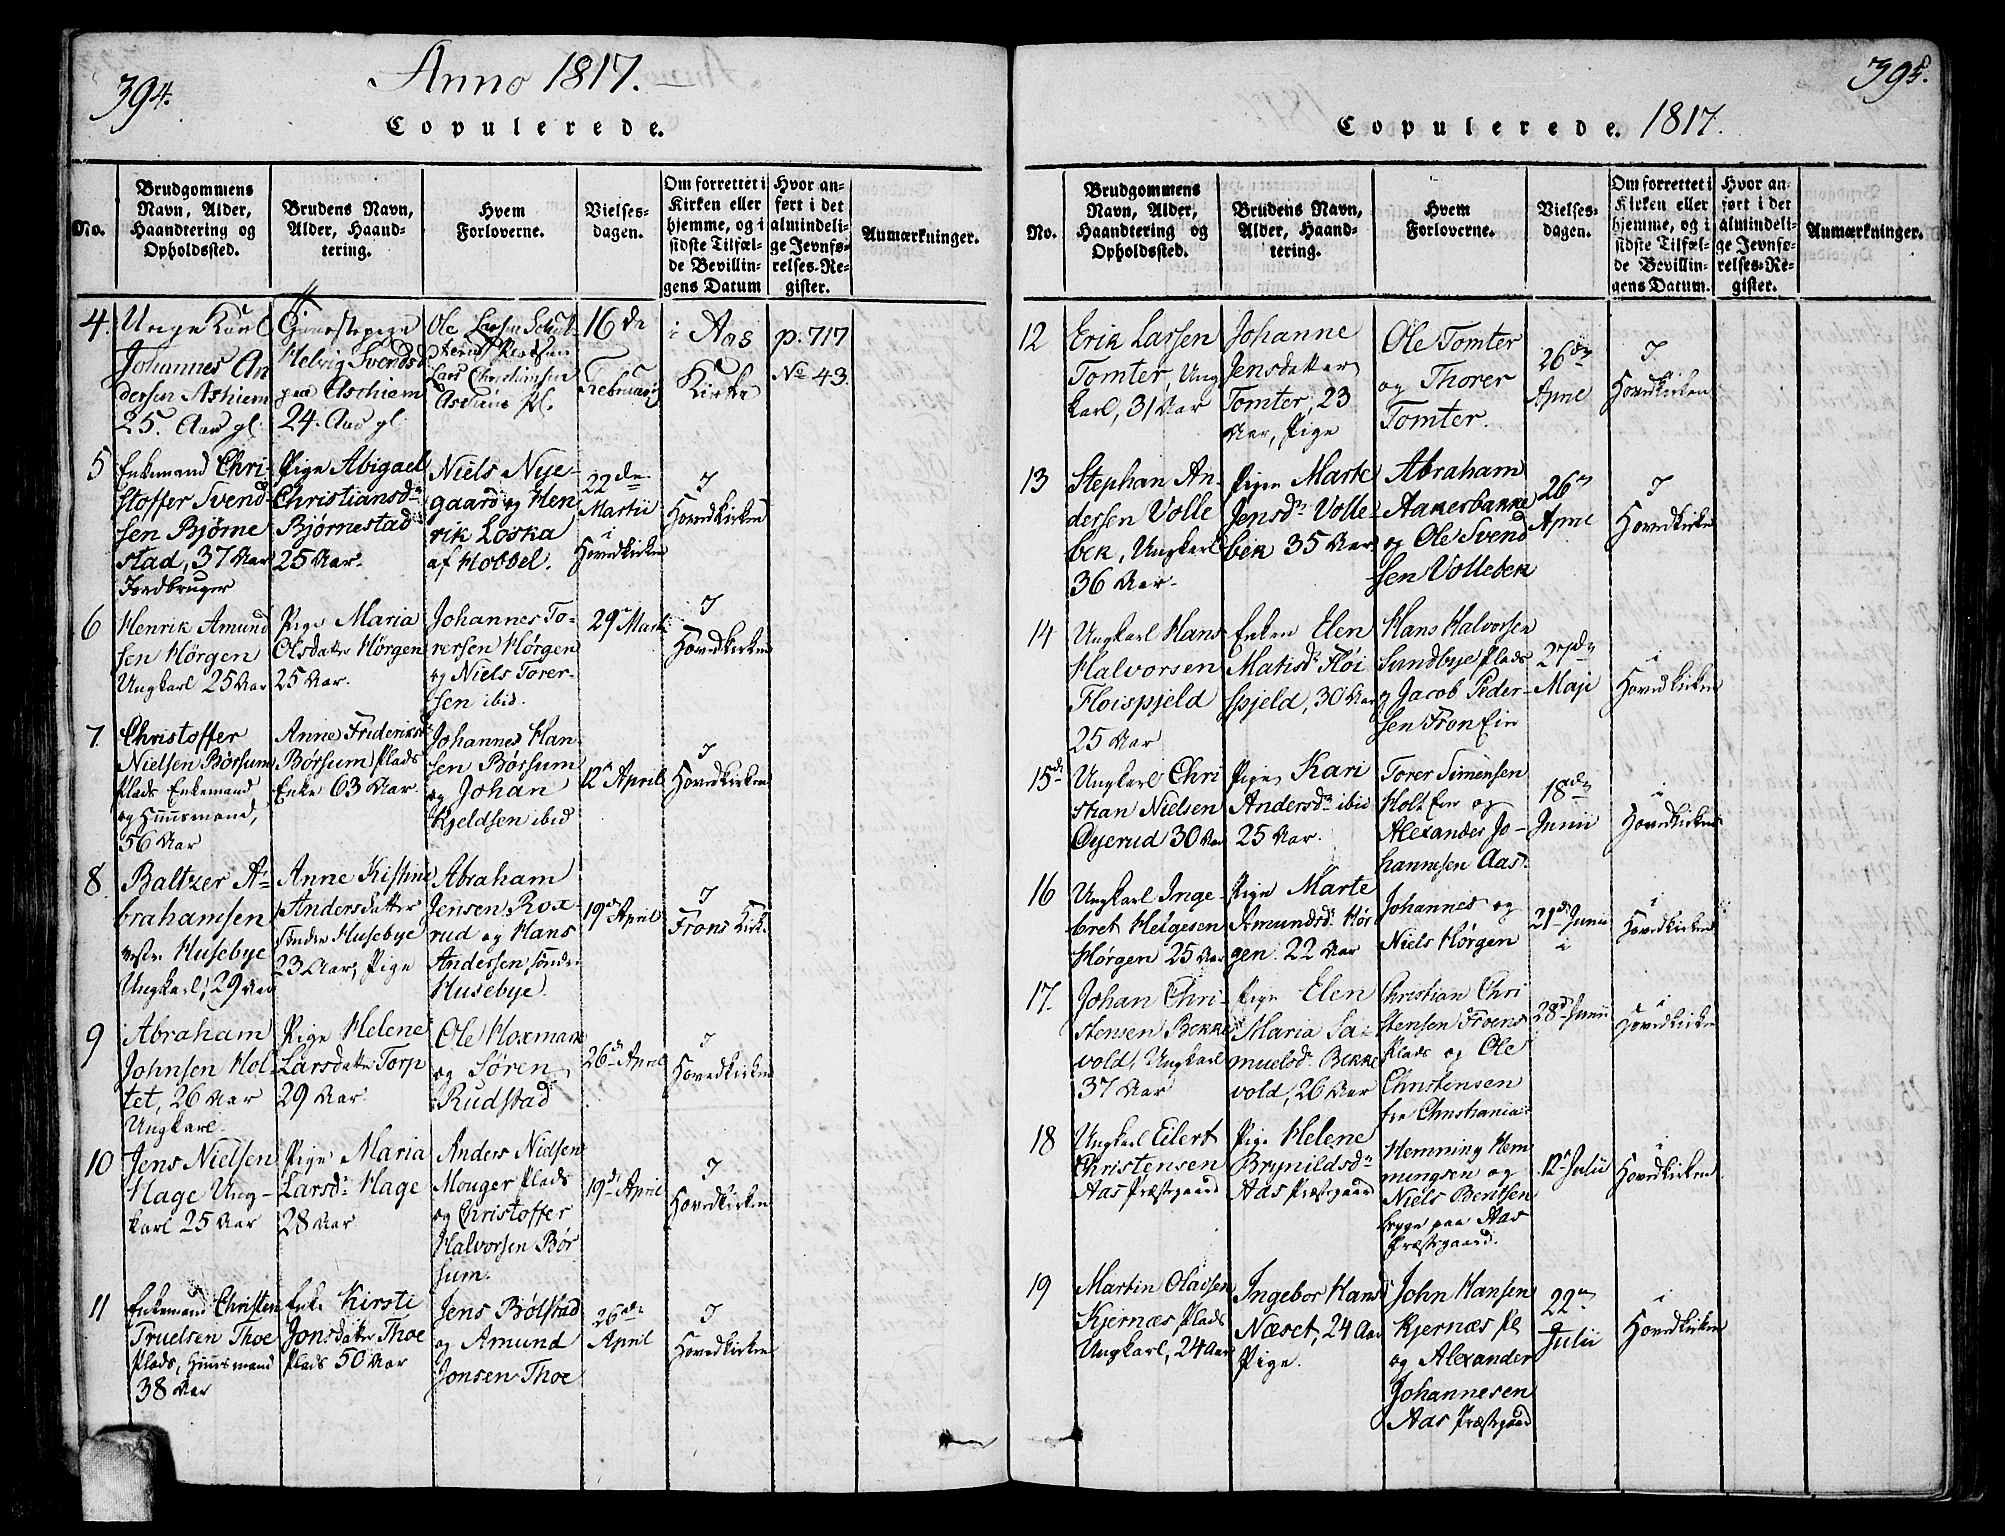 394.
Anno 1817.
Copulerede.
No.
Brudgommens
Navn, Alder,
Haandtering og
Opholdssted.
Brudens Navn,
Alder, Haand-
tering.
Hvem
Forloverne.
Vielses-
dagen.
Om forrettet i
Kirken eller
hjemme, og i
sidste Tilfæl-
de Bevillin-
gens Datum
Hvor an-
ført i det
almindeli-
ge Jevnfø-
relses-Re-
gister.
Anmærkninger.
4.
Unge Karl
Johannes An
dersen Ashiem
25. Aar gl.
Tjenestepige
Helvig Svendsd
paa Aschiem
24. Aar gl.
Ole Larsen
Lars Christiansen
Aschiem Pl.
16de
Februarij
i Aas
Kirke
p. 717
No 43
5
Enkemand Chri-
stoffer Svend
sen Bjørne
stad, 37 Aar
Jordbruger
Pige Abigael
Christiansdr
Bjørnestad
25 Aar.
Niels Nye-
gaard og Hen
rik Loska
af Hobbel.
22de
Martii
i
Hovedkirken
I
Hovedkirken
6
Henrik Amund
sen Hørgen
Ungkarl 25 Aar
Pige Maria
Olsdatter Hørgen
25 Aar.
Johannes To-
rersen Hørgen
og Niels Torer-
sen ibid.
29 Martii
I
Hovedkirken
7.
Christoffer
Nielsen Børsum
Plads Enkemand
og Huusmand,
56 Aar
Anne Frideriksd
Børsum Plads
Enke 63 Aar.
Johannes Han-
sen Børsum
og Johan
Kjeldsen ibid
12 April
I
Hovedkirken
8.
Baltzer A-
brahamsen
vestre Husebye
Ungkarl, 29 Aar
Anne Kistine
Andersdatter
Sønder Husebye
23 Aar, Pige
Abraham
Jensen Rox-
rud og Hans
Andersen sønder
Husebye.
19d April
I
Frons Kirk.
9
Abraham
Johnsen Hol-
tet, 26 Aar
Ungkarl.
Pige Helene
Larsdatter Torp
29 Aar.
Ole Hoxmark
og Søren
Rudstad
26d April
I
Hovedkirken
10
Jens Nielsen
Hage Ung-
karl 25 Aar
Pige Maria
Larsdr Hage
28 Aar
Anders Nielsen
Monger Plads
og Christoffer
Halvorsen Bør
sum.
19d April
I
Hovedkirken
11
Enkemand Christen
Truelsen Thoe
Plads, Huusmand
38 Aar
Enke Kirsti
Jonsdatter Thoe
Plads 50 Aar
Jens Bølstad
og Amund
Jonsen Thoe
26de
April
I
Hovedkirken
395.
Copulerede. 1817.
No.
Brudgommens
Navn, Alder,
Haandtering og
Opholdssted.
Brudens Navn,
Alder, Haand-
tering.
Hvem
Forloverne.
Vielses-
dagen.
Om forrettet i
Kirken eller
hjemme, og i
sidste Tilfæl-
de Bevillin-
gens Datum.
Hvor an-
ført i det
almindeli-
ge Jevnfø-
relses-Re-
gister.
Anmærkninger.
12
Erik Larsen
Tomter, Ung
karl, 31 Aar
Johanne
Jensdatter
Tomter, 23
Aar, Pige
Ole Tomter
og Thorer
Tomter.
26de
April
I
Hovedkirken
13
Stephan An-
dersen Volle
bek, Ungkarl
36 Aar.
Pigen Marte
Jensdr Volle-
bek 35 Aar
Abraham
Aakerbakke
og Ole Svend
sen Vollebek
26
April
I
Hovedkirken
14
Ungkarl Hans
Halvorsen
Floispjeld
25 Aar
Enken Elen
Matisd Fløi
spjeld, 30 Aar
Hans Halvorsen
Sundbye Plads
og Jacob Peder-
sen Fron Eie
27de
Maji
i
Hovedkirken
15de
Ungkarl Chri
stian Nielsen
Øyerud 30 Aar
Pige Kari
Andersdr ibid
25 Aar.
Torer Simensen
Holt Eie og
Alexander Jo-
hannesen Aas.
18de
Junii
i
Hovedkirken
16
Ungkarl Inge
bret Helgesen
Hørgen 25 Aar
Pige Marte
Amundsdr Hør
gen. 22 Aar
Johannes og
Niels Hørgen
21de Junii
i
i
Hovedkirken
17.
Johan Chri-
stensen Bekke
vold, Ungkarl
37 Aar
Pige Elen
Maria Sa-
muelsdr Bekke
vold, 26 Aar
Christian Chri
stensen Froens
Plads og Ole
Christensen
fra Christiania.
28d Junii
i
Hovedkirken
18
Ungkarl Eilert
Christensen
Aas Præstgaard
Pige Helene
Brynildsdr
Aas Præstgaard
Hemming Hem
mingsen og
Niels Bentsen
begge paa Aas
Præstgaard.
12 Julii
i
Hovedkirken
19
Martin Olavsen
Kjernæs Plads
Ungkarl, 24 Aar
Ingebor Hansd
Næset, 24 Aar
Pige.
John Hansen
Kjernæs Pl
og Alexander
Johannesen
Aas Præstgaard
22
Julii
i
Hovedkirken